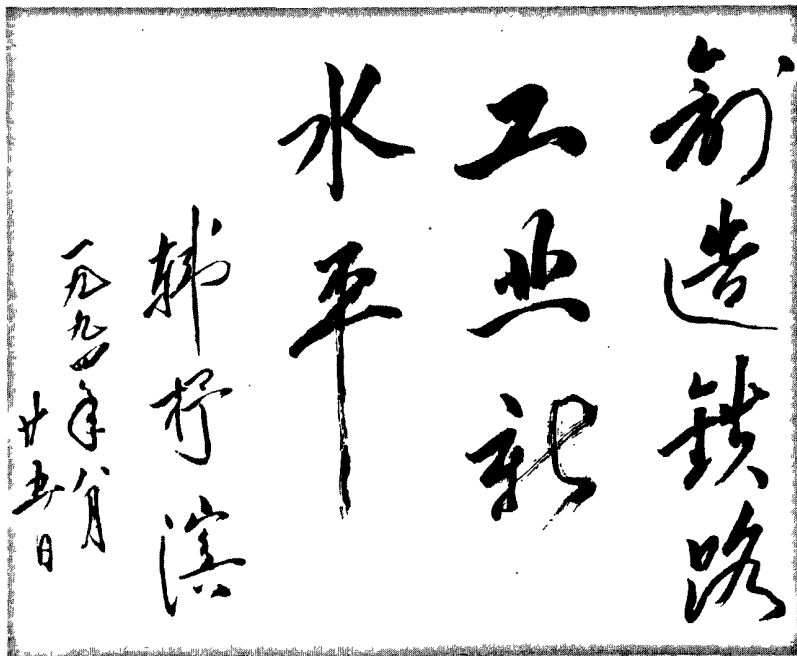 创造鉄路
工业新
水平
韩杼滨
一九九四年八月
廿五日